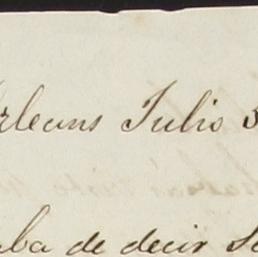 rleans Julio
aba de decir